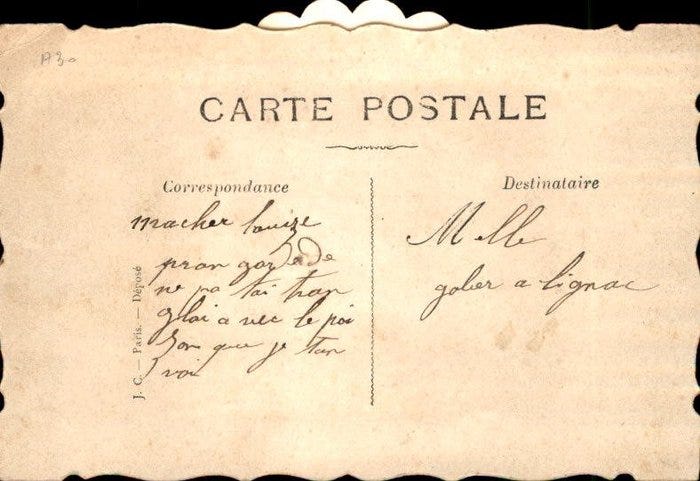 A 30
CARTE POSTALE
Correspondance
macher louize
pran gar de de
ne pa tai tran
glai a vec le poi
Son que je tan
voi
J. C. — Paris. — Déposé
Destinataire
Melle
gober a lignac